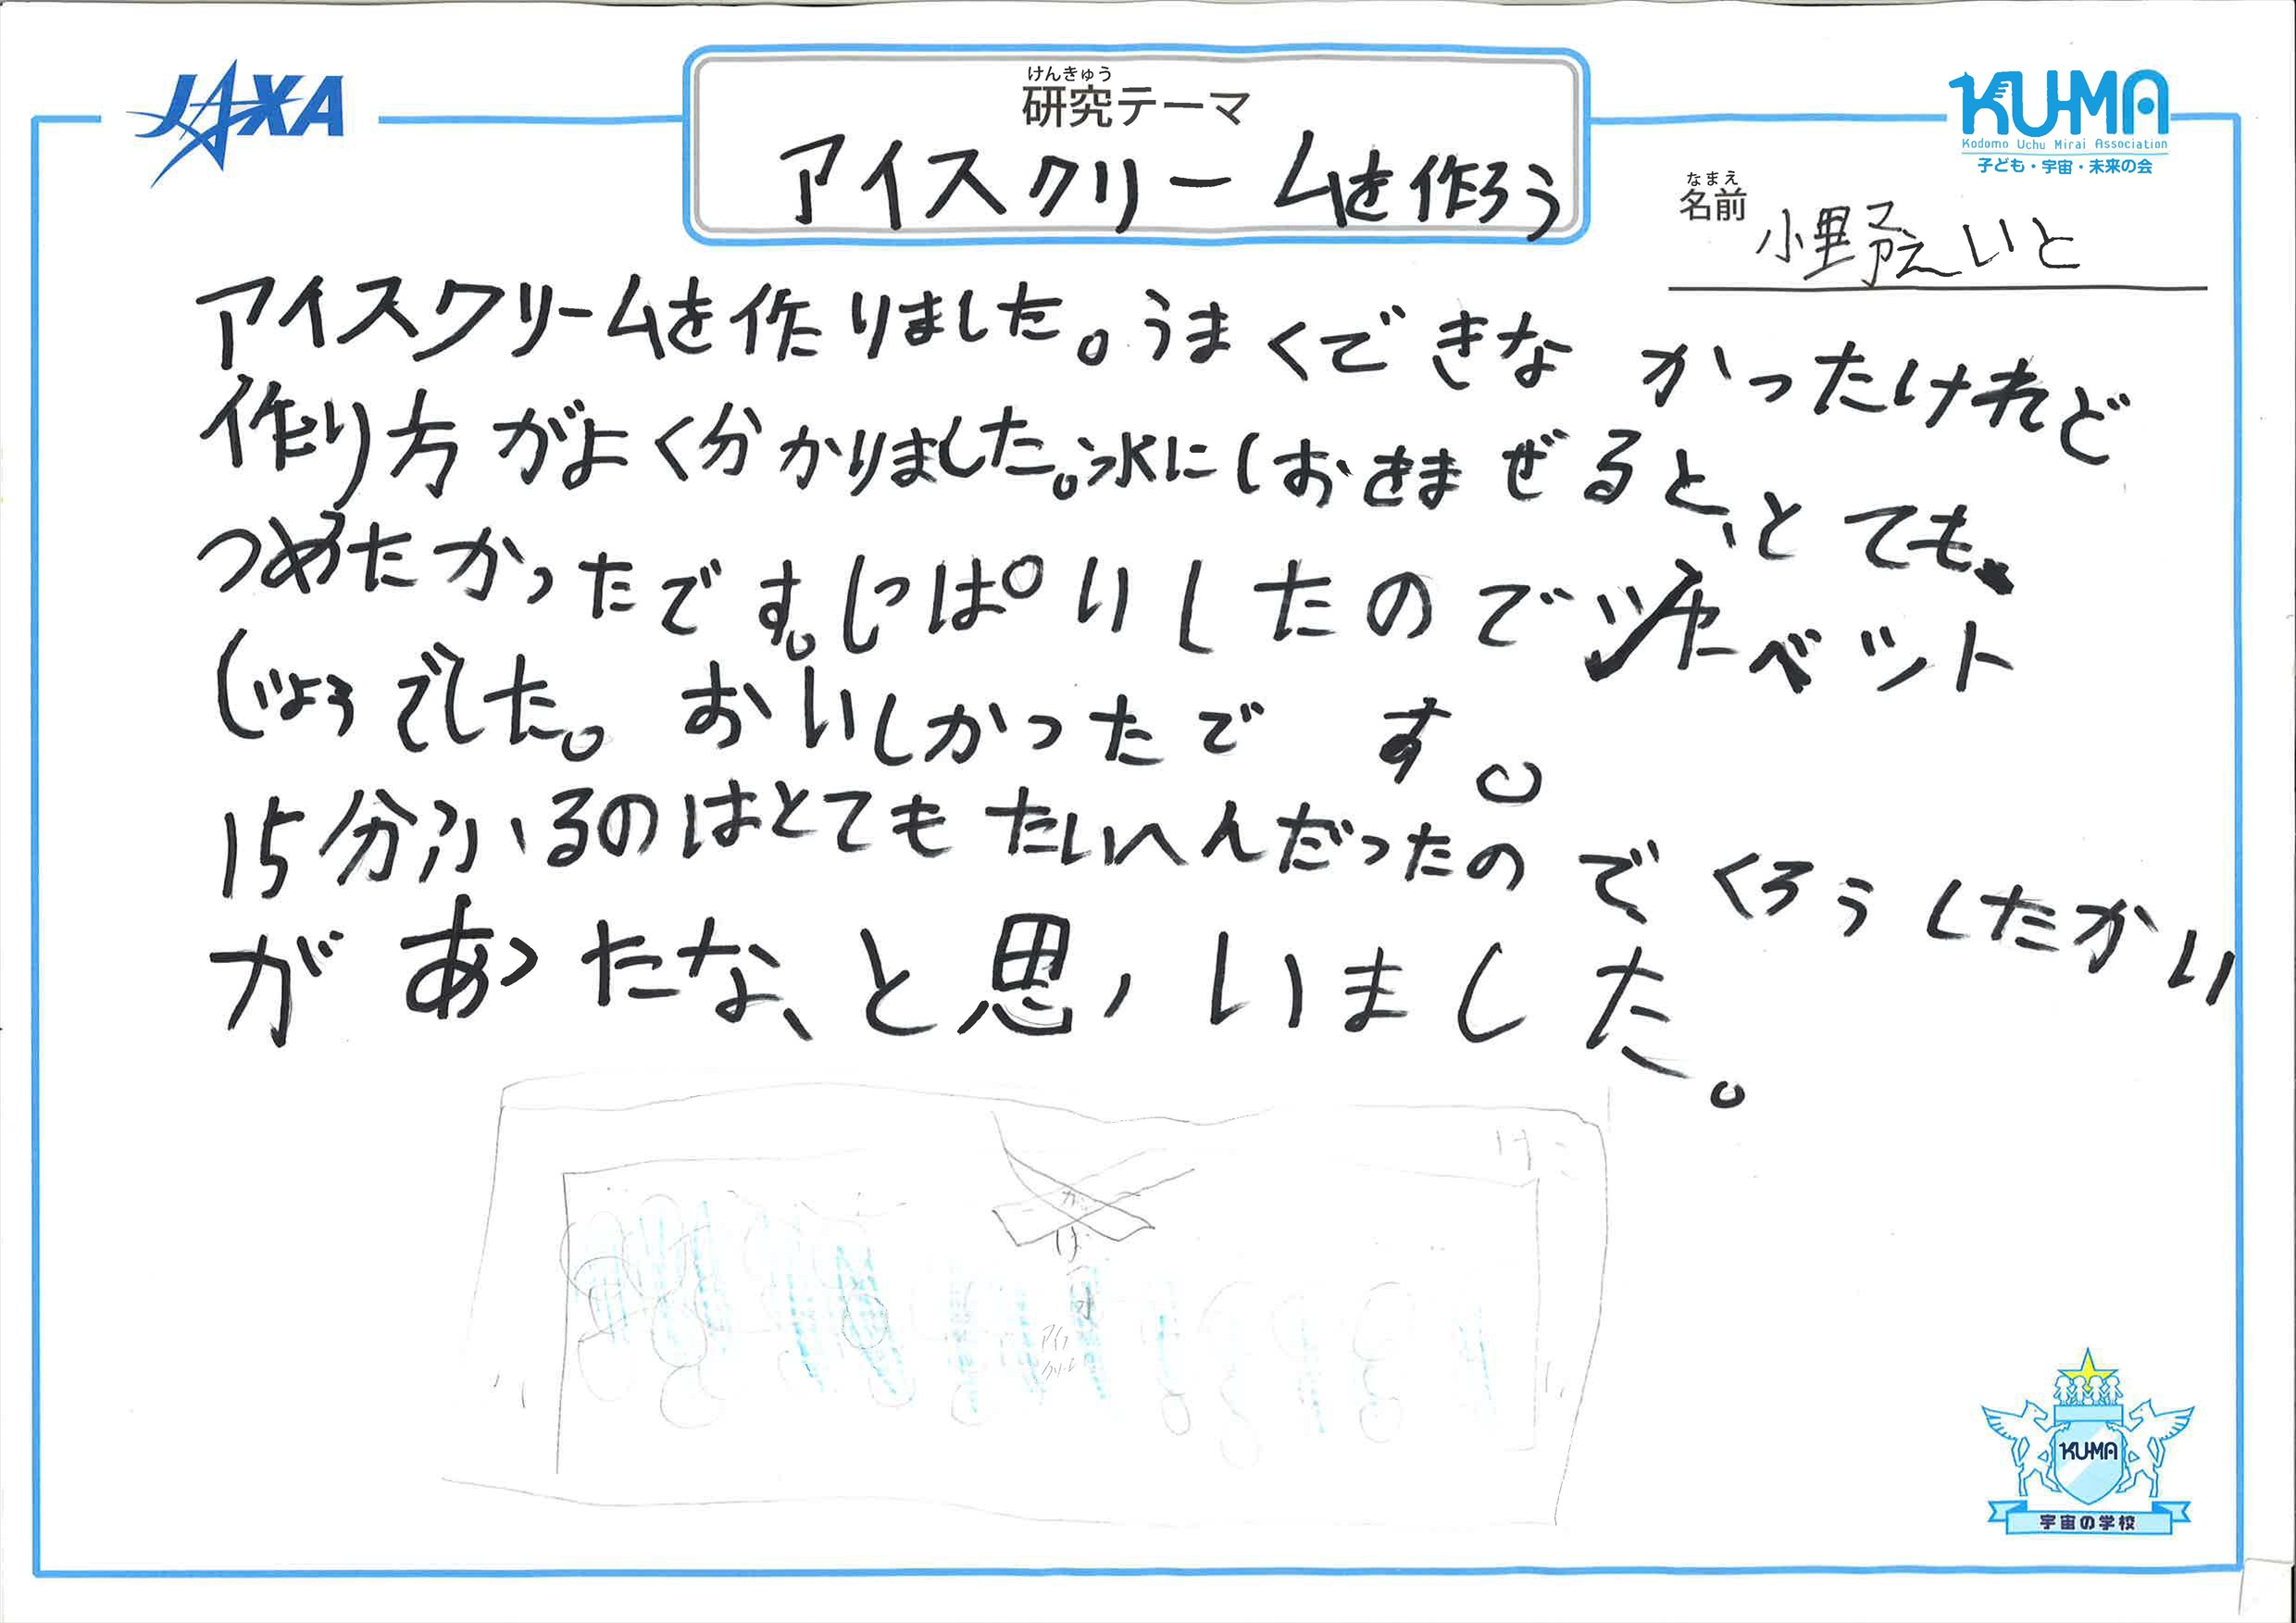 JAXA
けんきゅう
研究テーマ
アイスクリームを作ろう
KUMA
Kodomo Uchu Mirai Association
子ども・宇宙・未来の会
なまえ
名前
小野えいと
アイスクリームを作りました。うまくできなかったけれど
作り方がよく分かりました。氷にしおをまぜると、とても
つめたかったです。しっぱいしたのでシャーベット
じょうでした。おいしかったです。
15分ふるのはとてもたいへんだったのでくろうしたかい
があったな、と思いました。
アイス
クリーム
KUMA
宇宙の学校